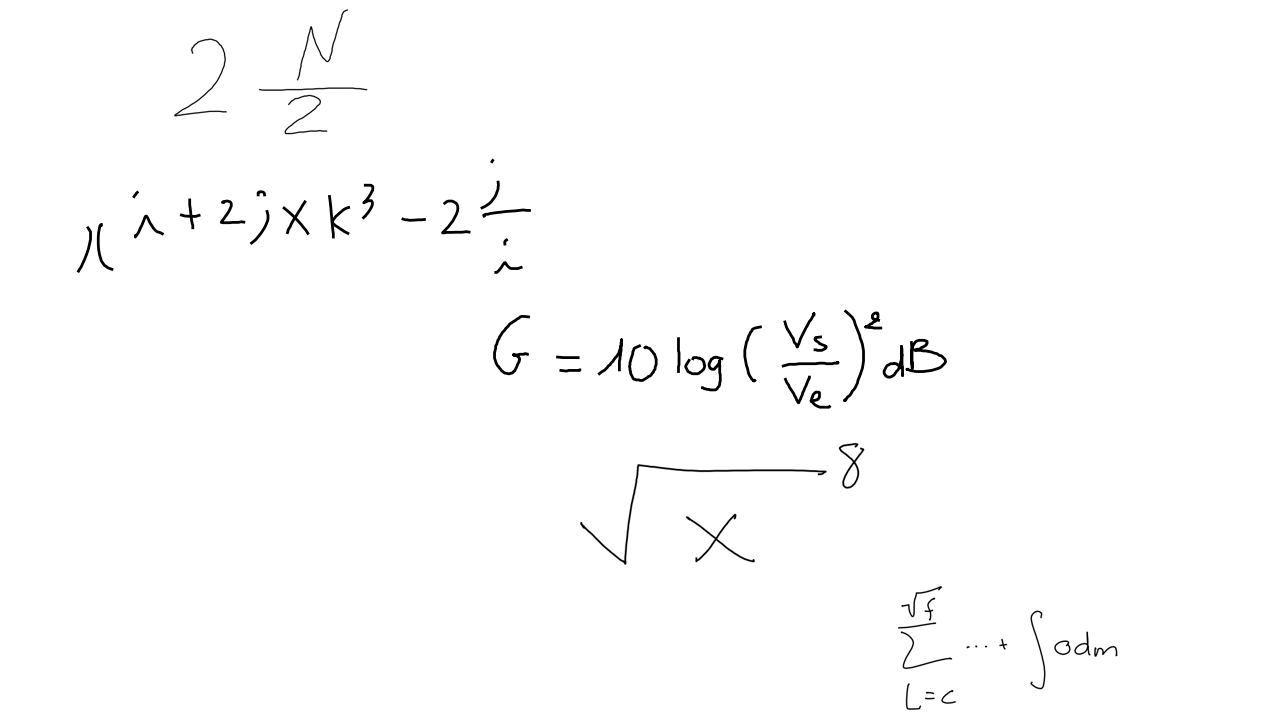 2 \frac{N}{2}
x^{i+2j \times k^3 - 2\frac{j}{i}}
G = 10 log (\frac{V_s}{V_e})^2 dB
\sqrt{x}^8
\sum_{L=c}^{\sqrt{f}} ... + \int 0dm